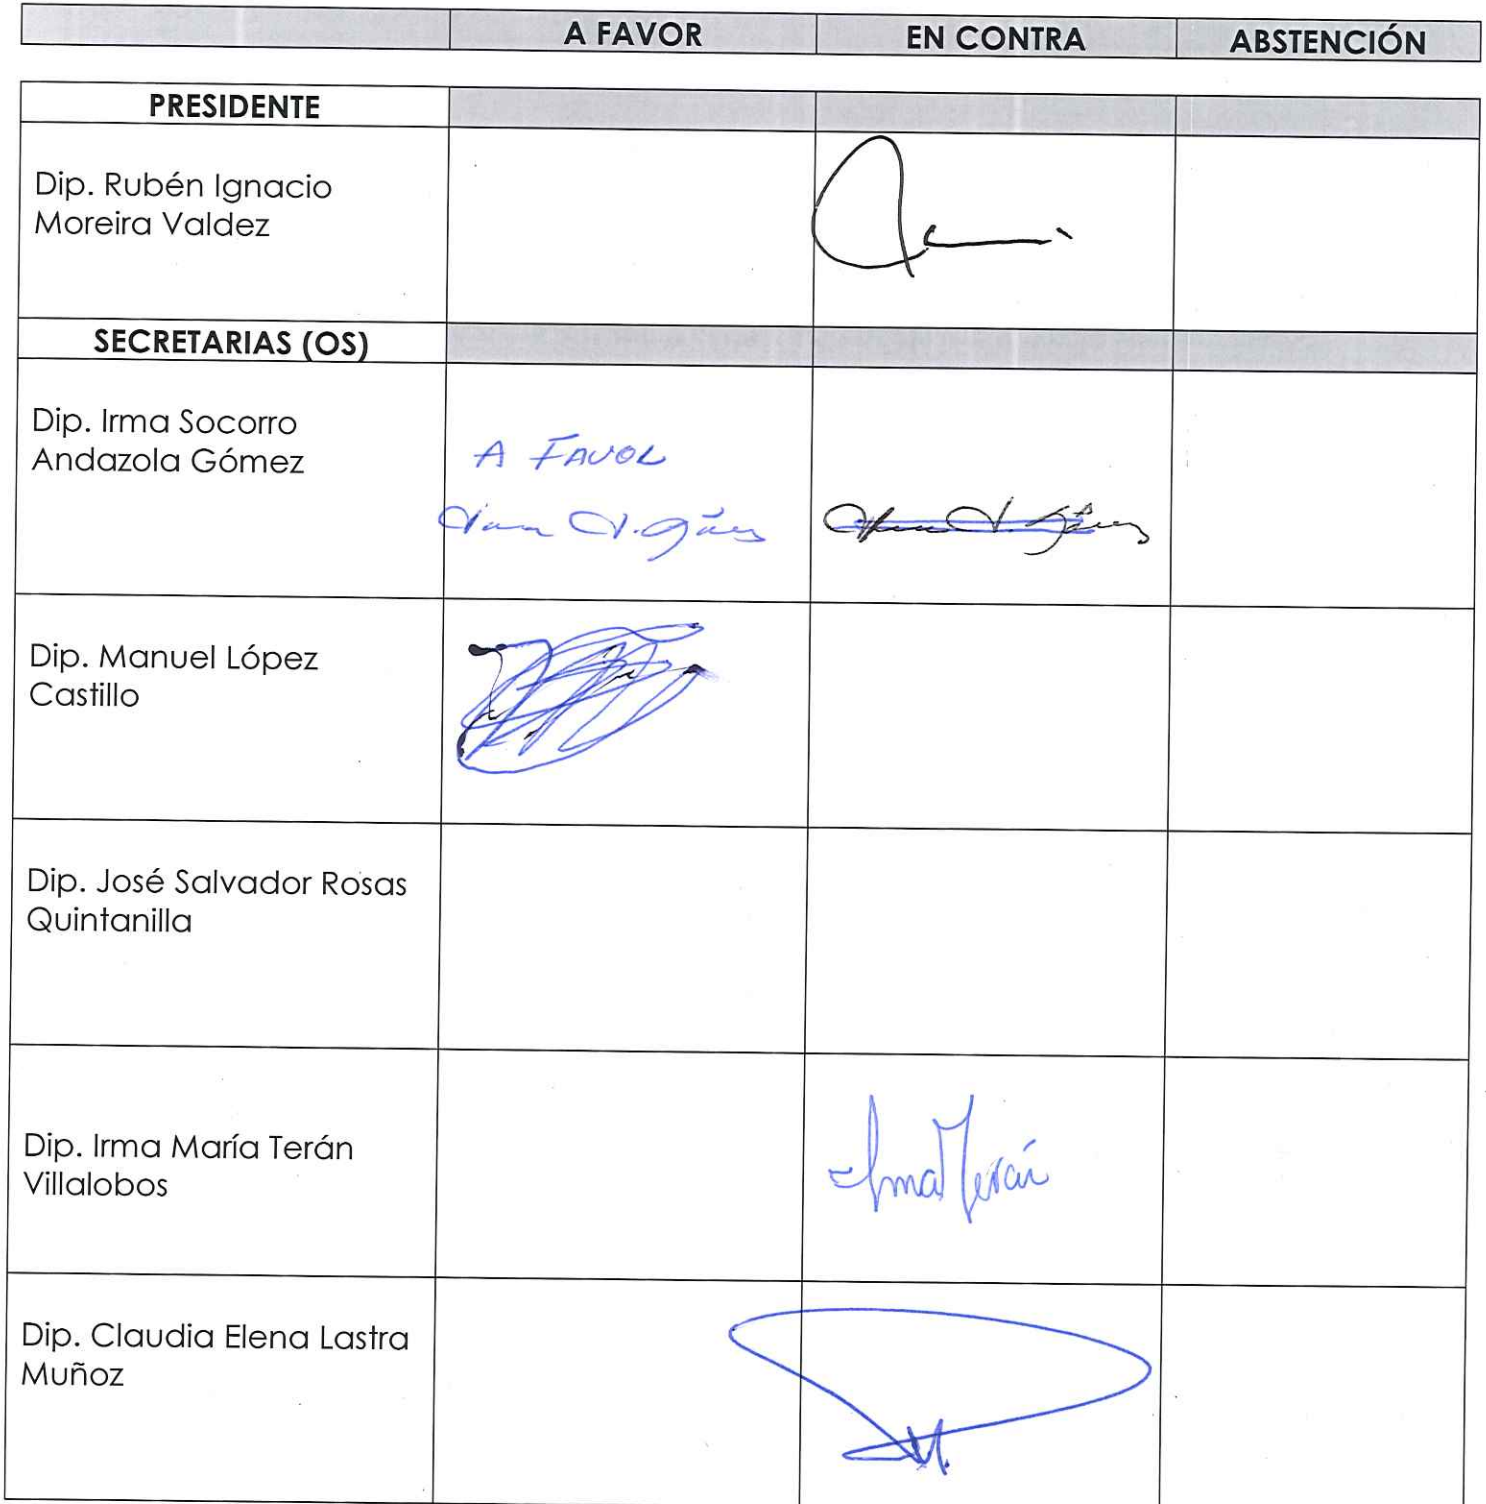 A FAVOR EN CONTRA ABSTENCIÓN
PRESIDENTE
Dip. Rubén Ignacio
Moreira Valdez
SECRETARIAS (OS)
Dip. Irma Socorro
Andazola Gómez
A FAVOR
Dip. Manuel López
Castillo
Dip. José Salvador Rosas
Quintanilla
Dip. Irma María Terán
Villalobos
Irma Terán
Dip. Claudia Elena Lastra
Muñoz